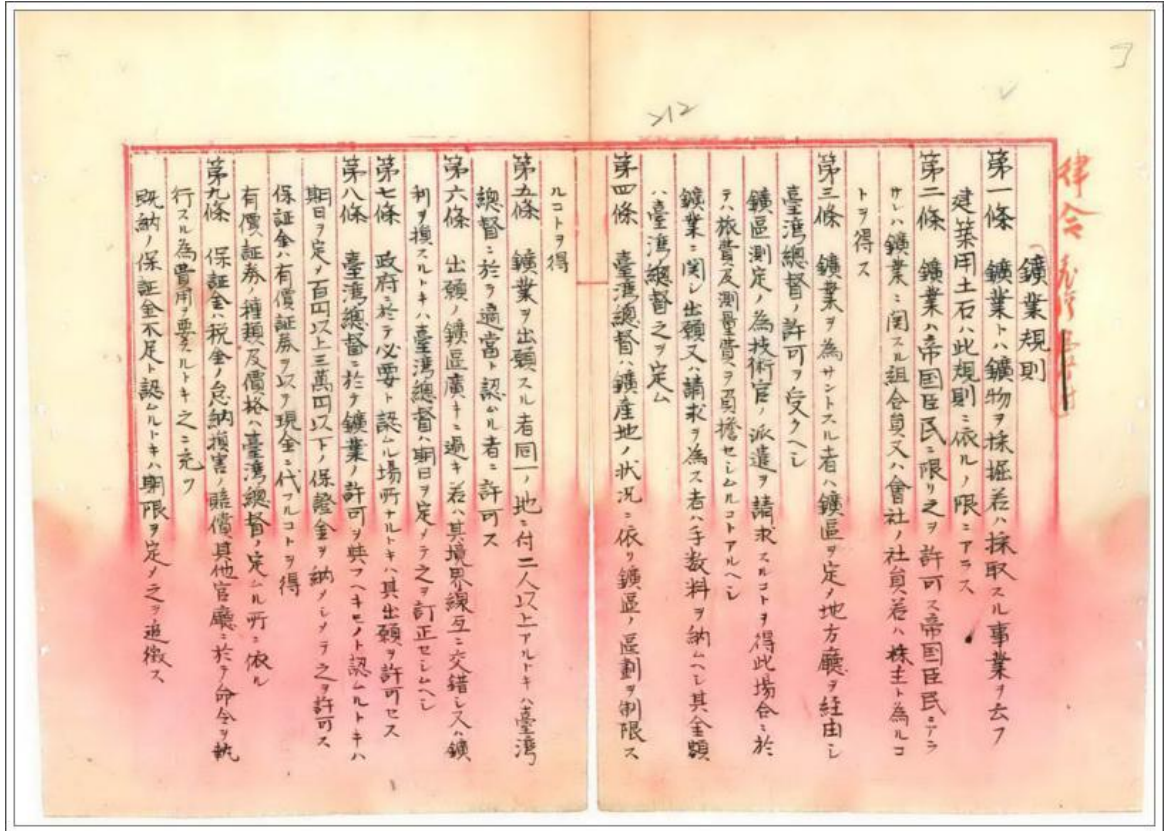 律令
鑛業規則
第一條　鑛業トハ鑛物ヲ採掘若ハ採取スル事業ヲ云フ
建築用土石ハ此規則ニ依ルノ限ニアラス
第二條　鑛業ハ帝国臣民ニ限リ之ヲ許可ス帝国臣民ニアラ
サレハ鑛業ニ関スル組合員又ハ會社ノ社員若ハ株主ト為ルコ
トヲ得ス
第三條　鑛業ヲ為サントスル者ハ鑛區ヲ定メ地方廳ヲ経由シ
臺湾總督ノ許可ヲ受クヘシ
鑛區測定ノ為技術官ノ派遣ヲ請求スルコトヲ得此場合ニ於
テハ旅費及測量費ヲ負擔セシムルコトアルヘシ
鑛業ニ関シ出願又ハ請求ヲ為ス者ハ手数料ヲ納ムヘシ其金額
ハ臺湾總督之ヲ定ム
212
第四條　臺湾總督ハ鑛産地ノ状况ニ依リ鑛區ノ區劃ヲ制限ス
ルコトヲ得
第五條　鑛業ヲ出願スル者同一ノ地ニ付二人以上アルトキハ臺湾
總督ニ於テ適當ト認ムル者ニ許可ス
第六條　出願ノ鑛區廣キニ過キ若ハ其境界線互ニ交錯シ又ハ鑛
利ヲ損スルトキハ臺湾總督ハ期日ヲ定メテ之ヲ訂正セシムヘシ
第七條　政府ニ於テ必要ト認ムル場所ナルトキハ其出願ヲ許可セス
第八條　臺湾總督ニ於テ鑛業ノ許可ヲ與フヘキモノト認ムルトキハ
期日ヲ定メ百円以上三萬円以下ノ保證金ヲ納メシメテ之ヲ許可ス
保証金ハ有價証券ヲ以テ現金ニ代フルコトヲ得
有價証券ノ種類及價格ハ臺湾總督ノ定ムル所ニ依ル
第九條　保証金ハ税金ノ怠納損害ノ賠償其他官廳ニ於テ命令ヲ執
行スル為費用ヲ要スルトキ之ニ充ツ
既納ノ保証金不足ト認ムルトキハ期限ヲ定メ之ヲ追徴ス